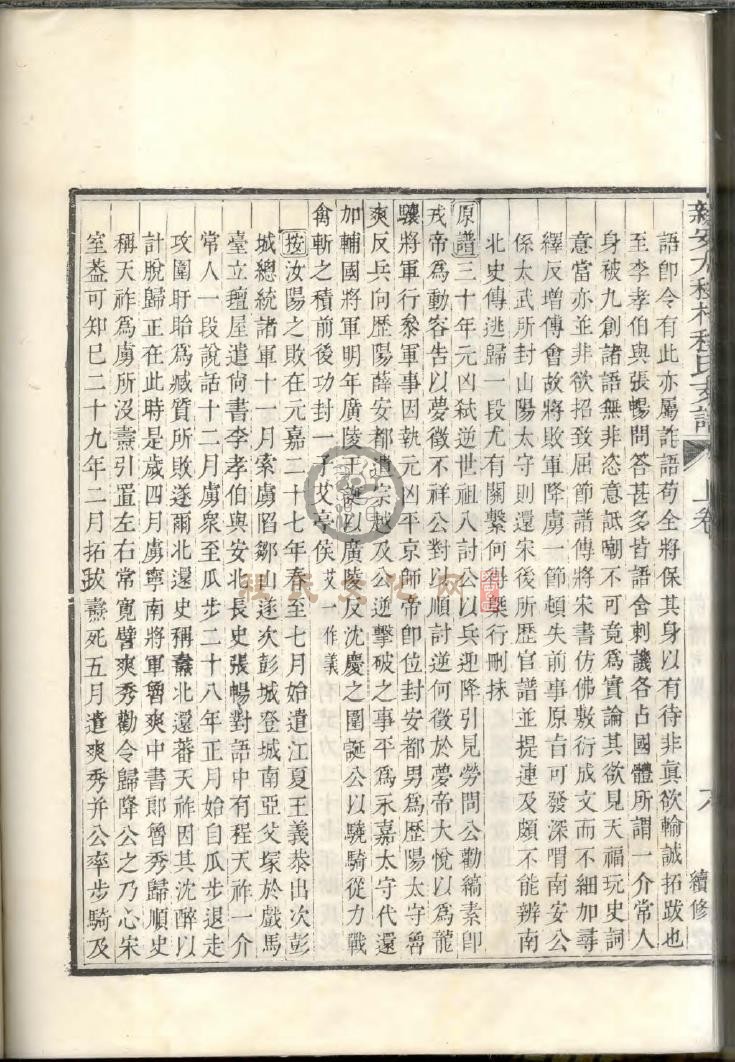 新安大程村程氏支譜
上卷
六
續修
語卽令有此亦屬詐語苟全將保其身以有待非眞欲輸誠拓跋也
至李孝伯與張暢問答甚多皆語含刺譏各占國體所謂一介常人
身破九創諸語無非恣意詆嘲不可竟爲實論其欲見天福玩史詞
意當亦並非欲招致屈節譜傳將宋書仿佛敷衍成文而不細加尋
繹反增傅會故將敗軍降虜一節頓失前事原旨可發深喟南安公
係太武所封山陽太守則還宋後所歷官譜並提連及頗不能辨南
北史傳逃歸一段尤有關繫何得槩行刪抹
原譜三十年元凶弑逆世祖入討公以兵迎降引見勞問公勸縞素卽
戎帝爲動容告以夢徵不祥公對以順討逆何徵於夢帝大悅以爲龍
驤將軍行參軍事因執元凶平京師帝卽位封安都男爲歷陽太守魯
爽反兵向歷陽薛安都遣宗越及公逆擊破之事平爲永嘉太守代還
加輔國將軍明年廣陵王誕以廣陵反沈慶之圍誕公以驍騎從力戰
禽斬之積前後功封一子艾亭侯艾一作義
按汝陽之敗在元嘉二十七年春至七月始遣江夏王義恭出次彭
城總統諸軍十一月索虜陷鄒山遂次彭城登城南亞父塚於戲馬
臺立氊屋遣尙書李孝伯與安北長史張暢對語中有程天祚一介
常人一段說話十二月虜衆至瓜步二十八年正月始自瓜步退走
攻圍盱眙爲臧質所敗遂爾北還史稱燾北還蕃天祚因其沈醉以
計脫歸正在此時是歲四月虜寧南將軍魯爽中書郎魯秀歸順史
稱天祚爲虜所沒燾引置左右常寬譬爽秀勸令歸降公之乃心宋
室葢可知巳二十九年二月拓跋燾死五月遣爽秀并公率步騎及